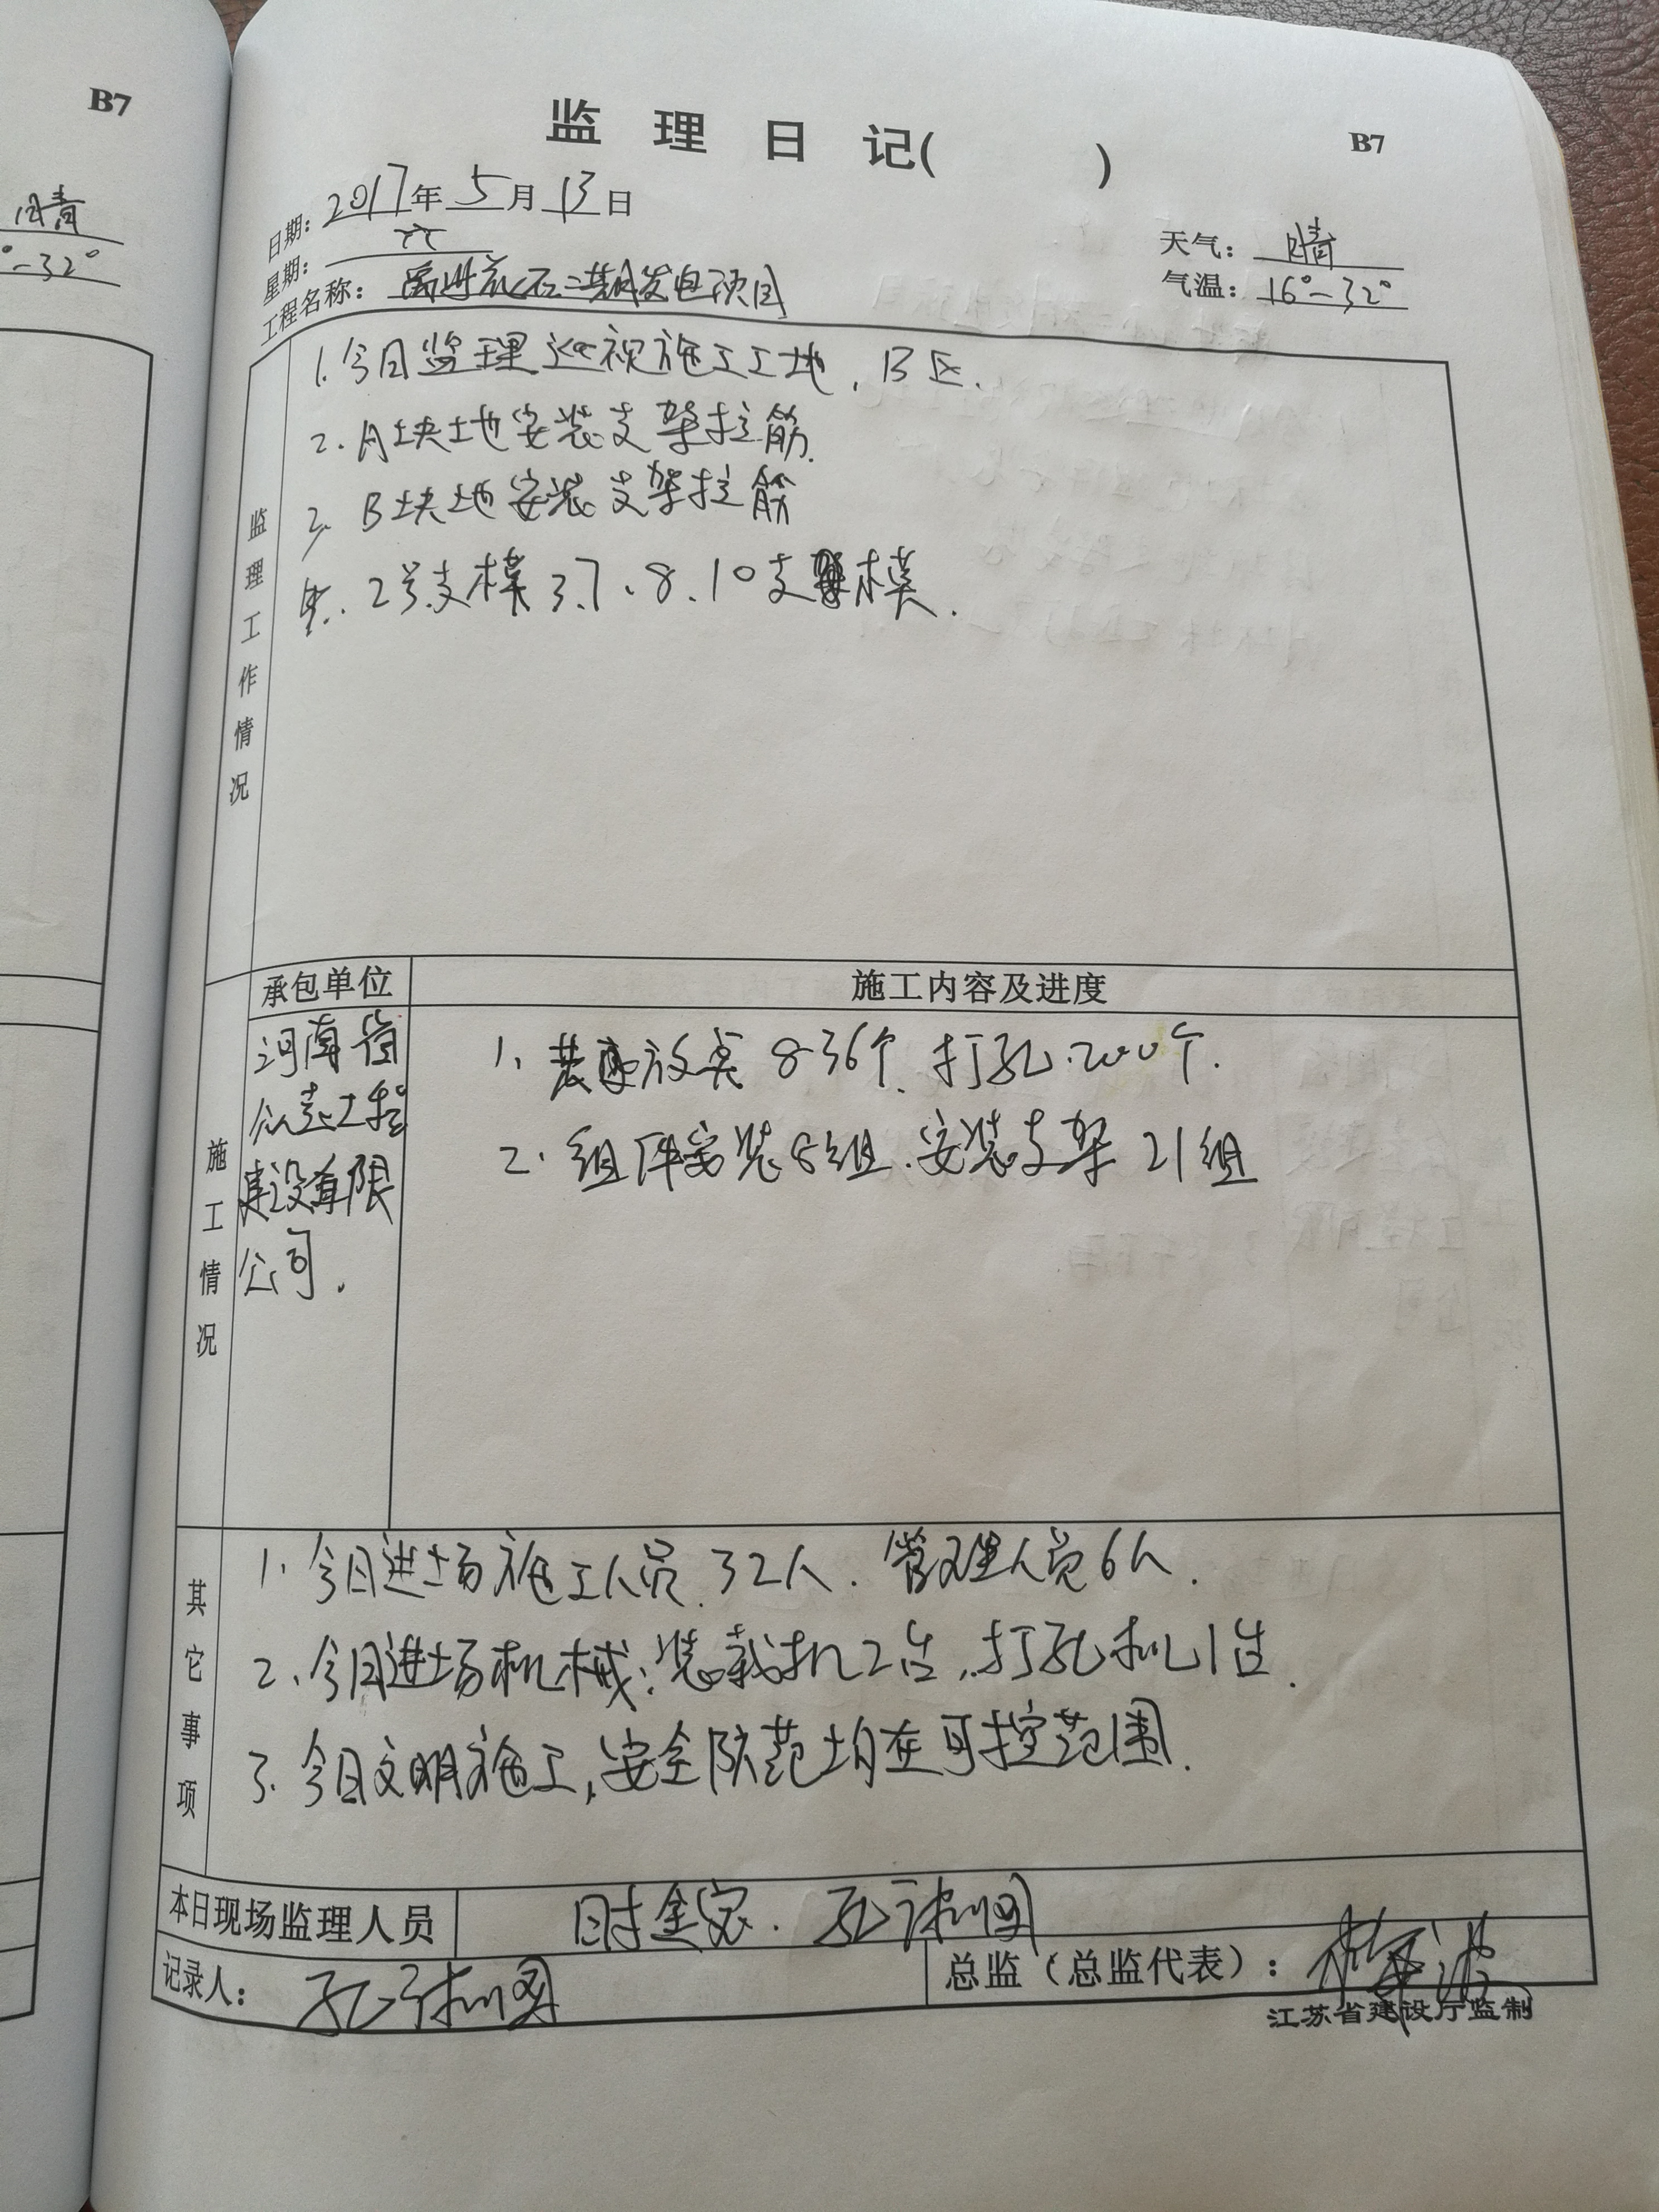 B7
晴
°-32°
监理日记( )
B7
日期: 2017年5月13日
星期: 六
天气: 晴
工程名称: 禹州花石二期发电项目
气温: 16°-32°
监理工作情况
1.今日监理巡视施工工地,B区.
2.A块地安装支架拉筋.
3.B块地安装支架拉筋
2号支模3.7、8、10支模.
承包单位
施工内容及进度
施工情况
河南省
建设有限
公司.
1、放点836个.打孔.200个.
2.组件安装8组.安装支架21组
其它事项
1.今日进场施工人员.32人.管理人员6人.
2.今日进场机械:装载机2台,打孔机1台.
3.今日文明施工,安全防范均在可控范围.
本日现场监理人员
记录人:
总监(总监代表):
江苏省建设厅监制